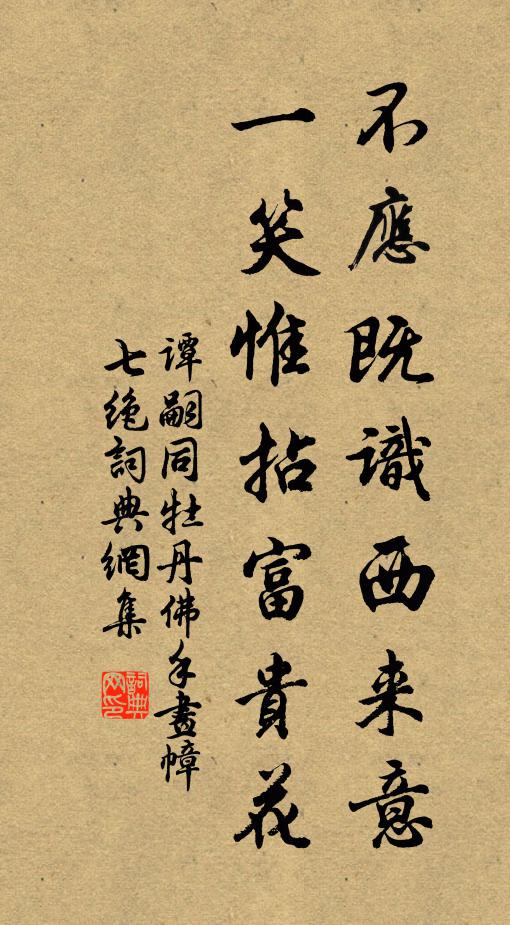 不應既識西来意
一笑惟拈富貴花
譚嗣同牡丹佛手畫幛
七绝詞典網集
詞典
网印